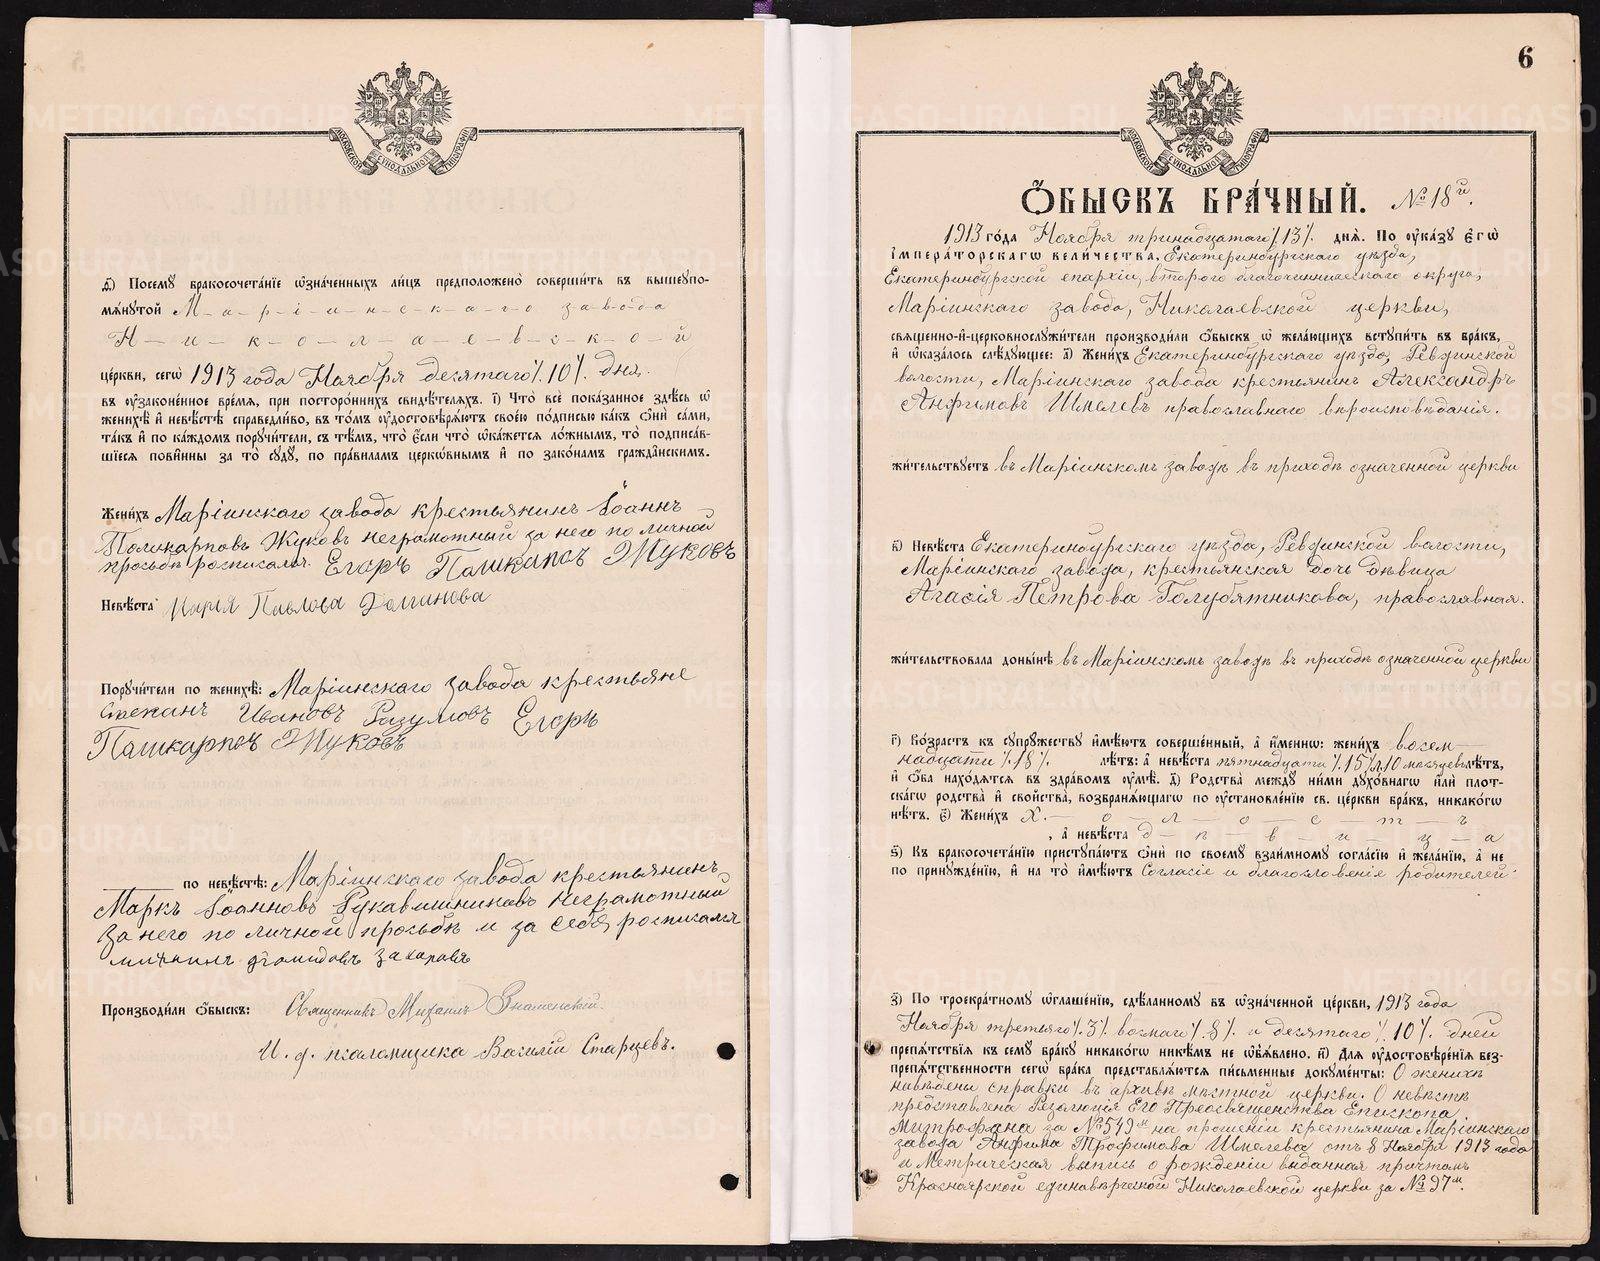 МОСКОВСКОЙ СѴНОДАЛЬНОЙ ТИПОГРАФІИ
д҃) Посемꙋ̀ бракосочета́нїе ѡ҆зна́ченныхъ ли́цъ предположено̀ соверши́ть въ вышеꙋпо-
мѧ́нꙋтой М-а-р-і-и-н-с-к-а-г-о з-а-в-о-д-а
Н-и-к-о-л-а-е-в-с-к-о-й
це́ркви, сегѡ̀ 1913 года Ноября десятаго /10/ дня.
въ ᲂу҆зако́ненное вре́мѧ, при посторо́ннихъ свидѣ́телѧхъ. і҃) Что̀ всѐ пока́занное здѣ́сь ѡ҆
женихѣ̀ и҆ невѣ́стѣ справедли́во, въ то́мъ ᲂу҆достовѣрѧ́ютъ свое́ю по́дписью ка́къ ѻ҆нѝ са́ми,
та́къ и҆ по ка́ждомъ порꙋчи́тели, съ тѣ́мъ, что̀ є҆́сли что̀ ѡ҆ка́жетсѧ ло́жнымъ, то̀ подписа́в-
шїесѧ пови́нны за то̀ сꙋдꙋ̀, по пра́виламъ церко́внымъ и҆ по зако́намъ гражда́нскимъ.
Жени́хъ Маріинскаго завода крестьянинъ Іоаннъ
Поликарповъ Жуковъ неграмотный за него по личной
просьбѣ росписался Егоръ Поликарпов Жуковъ
Невѣ́ста Марія Павлова
Порꙋчи́тели по женихѣ̀: Маріинскаго завода крестьяне
Степанъ Ивановъ Разумовъ Егоръ
Поликарпов Жуковъ
по невѣ́стѣ: Маріинскаго завода крестьянинъ
Маркъ Іоанновъ Рукавишниковъ неграмотный
за него по личной просьбѣ и за себя росписался
Захаровъ
Производи́ли ѻ҆́быскъ: Священникъ Михаилъ Знаменскій.
И. д. псаломщика Василій Старцевъ.
6
МОСКОВСКОЙ СѴНОДАЛЬНОЙ ТИПОГРАФІИ
Ѻ҆́БЫСКЪ БРА́ЧНЫЙ. №18й.
1913 го́да Ноября тринадцатаго /13/ днѧ̀. По ᲂу҆ка́зꙋ Є҆гѡ̀
І҆мпера́торскагѡ вели́чества, Екатеринбургскаго уѣзда,
Екатеринбургской епархіи, второго благочинническаго округа,
Маріинскаго завода, Николаевской церкви,
свѧще́нно-и҆-церковнослꙋжи́тели производи́ли ѻ҆́быскъ ѡ҆ жела́ющихъ встꙋпи́ть въ бра́къ,
и҆ ѡ҆каза́лось слѣ́дꙋющее: а҃) Жени́хъ Екатеринбургскаго уѣзда, Ревдинской
волости, Маріинскаго завода крестьянинъ Александръ
Анфимовъ Шмелевъ православнаго вѣроисповѣданія.
жи́тельствꙋетъ въ Маріинскомъ заводѣ въ приходѣ означенной церкви
в҃) Невѣ́ста Екатеринбургскаго уѣзда, Ревдинской волости,
Маріинскаго завода, крестьянская дочь дѣвица
Агафія Петрова Голубятникова, православная.
жи́тельствовала доны́нѣ въ Маріинскомъ заводѣ въ приходѣ означенной церкви
г҃) Во́зрастъ къ сꙋпрꙋ́жествꙋ и҆мѣ́ютъ соверше́нный, а҆ и҆́меннѡ: жени́хъ восем-
надцати /18/ лѣ́тъ: а҆ невѣ́ста пятнадцати /15/ л. 10 мѣсяцевъ лѣ́тъ,
и҆ ѻ҆́ба нахо́дѧтсѧ въ здра́вомъ ᲂу҆мѣ̀. д҃) Родства̀ междꙋ̀ ни́ми дꙋхо́внагѡ и҆лѝ пло́т-
скагѡ родства̀ и҆ сво́йства, возбранѧ́ющагѡ по ᲂу҆становле́нїю св. це́ркви бра́къ, никако́гѡ
нѣ́тъ. є҃) Жени́хъ х-о-л-о-с-т-ъ
, а҆ невѣ́ста д-ѣ-в-и-ц-а
ѕ҃) Къ бракосочета́нїю пристꙋпа́ютъ ѻ҆нѝ по своемꙋ̀ взаи́мномꙋ согла́сїю и҆ жела́нїю, а҆ не
по принꙋжде́нїю, и҆ на то̀ и҆мѣ́ютъ Согласіе и благословеніе родителей.
з҃) По троекра́тномꙋ ѡ҆глаше́нїю, сдѣ́ланномꙋ въ ѡ҆зна́ченной це́ркви, 1913 года
Ноября третьяго /3/ восмаго /8/ и десятаго /10/ дней
препѧ́тствїѧ къ семꙋ̀ бра́кꙋ никако́гѡ никѣ́мъ не ѡ҆б̾ѧ́влено. и҃) Длѧ̀ ᲂу҆достовѣре́нїѧ без-
препѧ́тственности сегѡ̀ бра́ка представлѧ́ютсѧ пи́сьменные докꙋме́нты: О женихѣ
наведены справки въ архивѣ мѣстной церкви. О невѣстѣ
представлена Резолюція Его Преосвященства Епископа
Митрофана за №549м на прошеніи крестьянина Маріинскаго
завода Анфима Трофимова Шмелева отъ 8 Ноября 1913 года
и Метрическая выпись о рожденіи выданная причтомъ
Красноярской единовѣрческой Николаевской церкви за №97м.